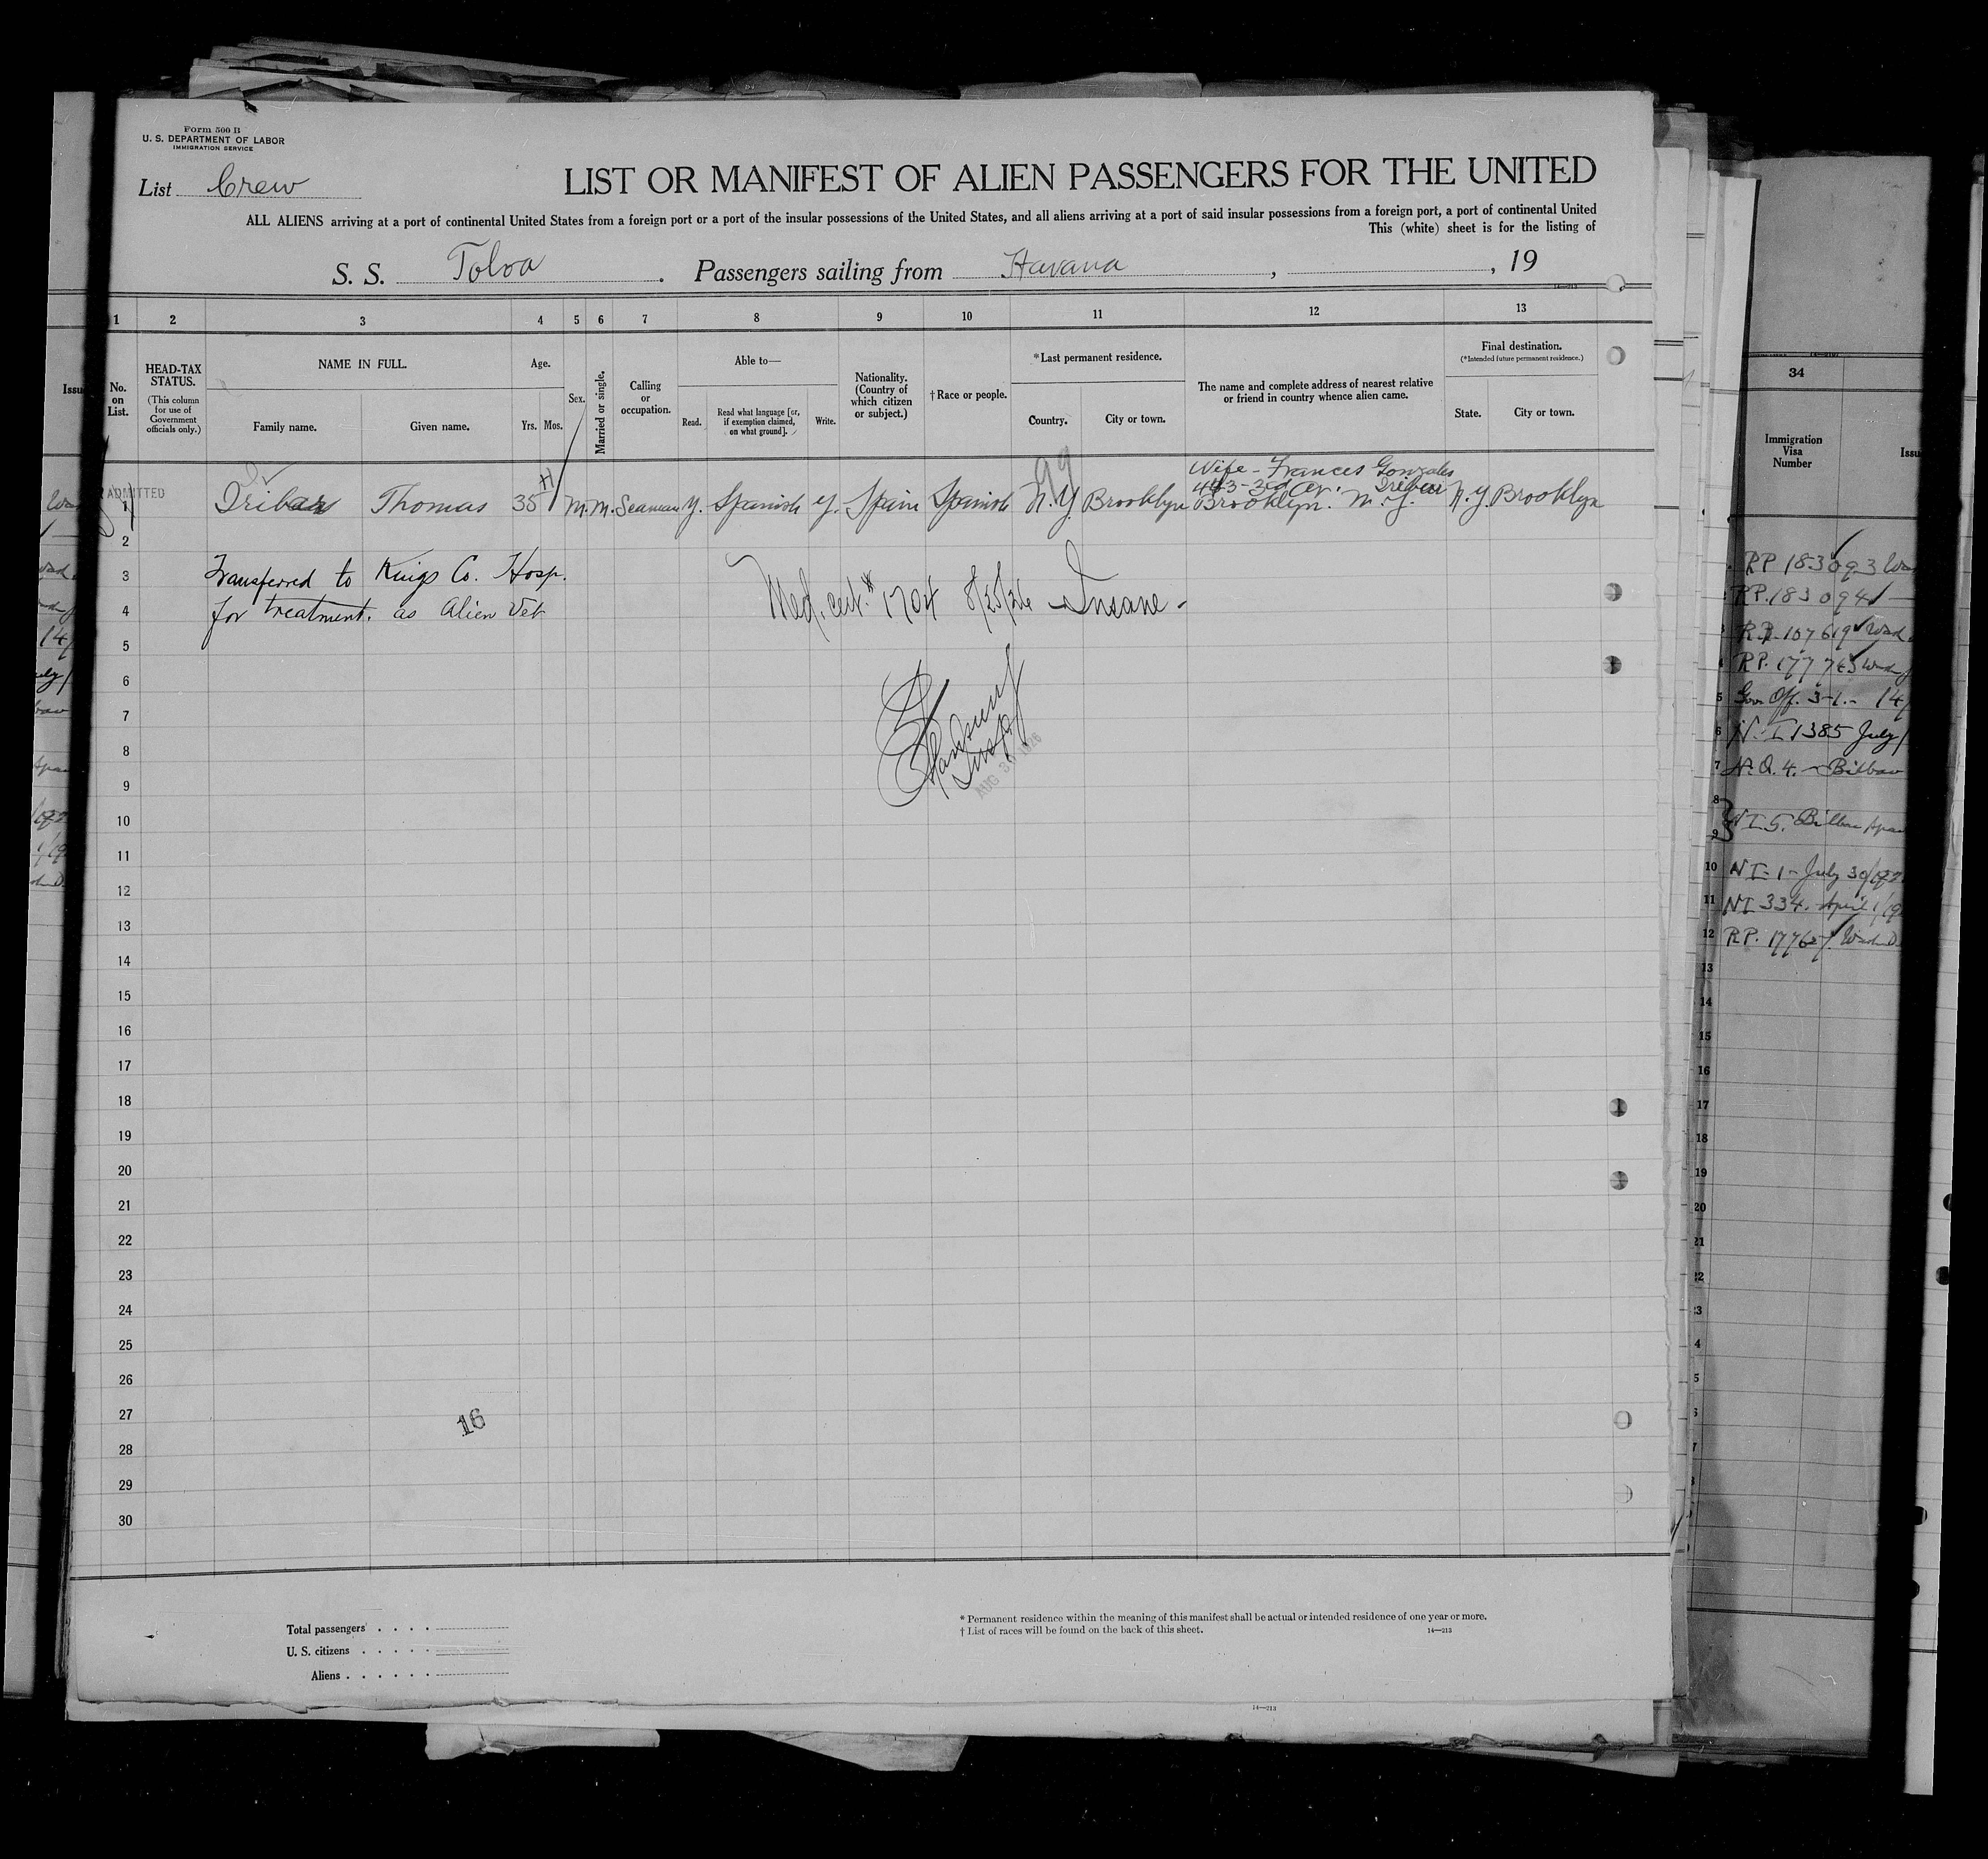 Form 500 B
U. S. DEPARTMENT OF LABOR
IMMIGRATION SERVICE
List Crew
LIST OR MANIFEST OF ALIEN PASSENGERS FOR THE UNITED
ALL ALIENS arriving at a port of continental United States from a foreign port or a port of the insular possessions of the United States, and all aliens arriving at a port of said insular possessions from a foreign port, a port of continental United
This (white) sheet is for the listing of
S. S. Toloa . Passengers sailing from Havana , , 19
1 2 3 4 5 6 7 8 9 10 11 12 13
No. on List.
HEAD-TAX STATUS.
(This column for use of Government officials only.)
NAME IN FULL.
Family name. Given name.
Age.
Yrs. Mos.
Sex.
Married or single.
Calling or occupation.
Able to—
Read. Read what language [or, if exemption claimed, on what ground]. Write.
Nationality. (Country of which citizen or subject.)
† Race or people.
*Last permanent residence.
Country. City or town.
The name and complete address of nearest relative or friend in country whence alien came.
Final destination.
(*Intended future permanent residence.)
State. City or town.
99
Wife - Frances Gonzales
443-3rd Av. Iribar
ADMITTED
1 Iribar Thomas 35 M. M. Seaman y. Spanish y. Spain Spanish N.Y. Brooklyn Brooklyn. N.Y. N.Y. Brooklyn
2
3 Transferred to Kings Co. Hosp.
4 for treatment. as Alien Vet
Med. cert. # 1704 8/25/26 - Insane -
5
6
7
8
9
Insp
AUG 3 1926
10
11
12
13
14
15
16
17
18
19
20
21
22
23
24
25
26
27
16
28
29
30
Total passengers
U. S. citizens
Aliens
* Permanent residence within the meaning of this manifest shall be actual or intended residence of one year or more.
† List of races will be found on the back of this sheet.
14—213
14—213
34
Immigration Visa Number
Issu
RP 183093
RP. 183094
RP. 107619 Wash.
RP. 177763
5 Gov Off. 3-1. - 14
6 N. I 1385 July
7 N.Q. 4. - Bilbao
8
9 NI 5. Bilbao
10 NI-1- July 30
11 NI 334. April 1/19
12 RP. 17762 Wash D.
13
14
15
16
17
18
19
20
21
22
23